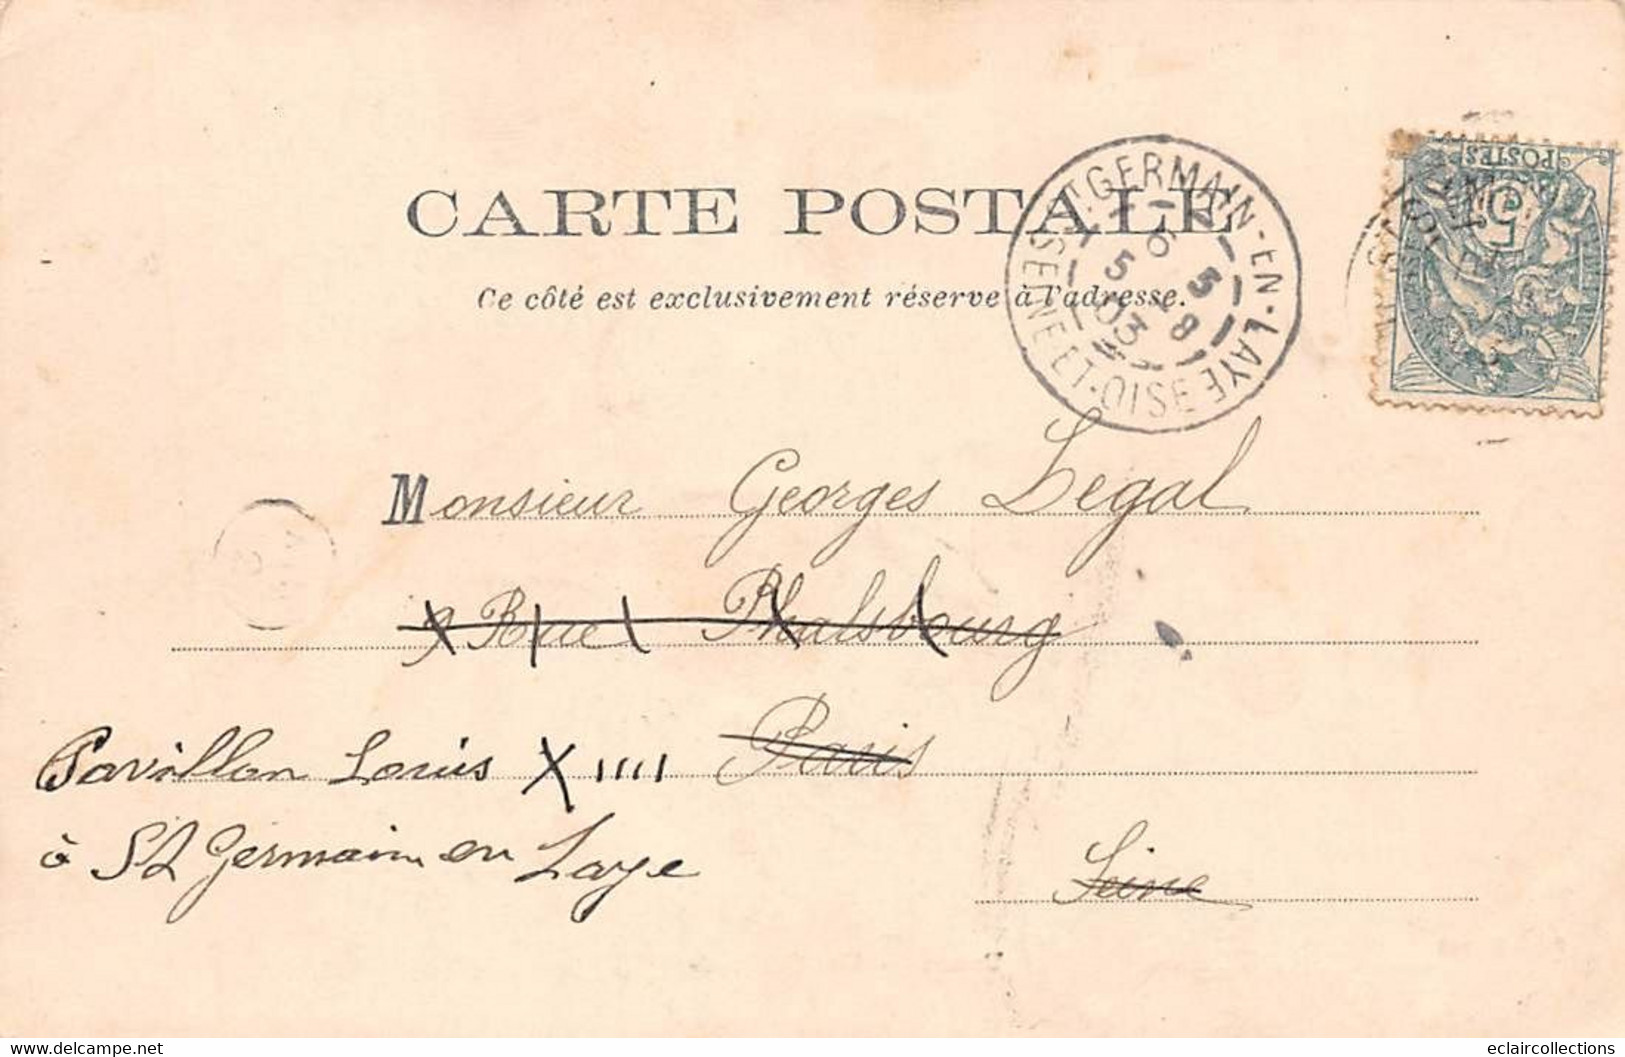 CARTE POSTALE
Ce côté est exclusivement réservé à l'adresse.
ST GERMAIN-EN-LAYE
SEINE-ET-OISE
6 5
5 18
03
POSTES
5
Monsieur Georges Legal
9 Rue Phalsbourg
Paris
Pavillon Louis XIIII
à St Germain en Laye
Seine
delcampe.net
eclaircollections